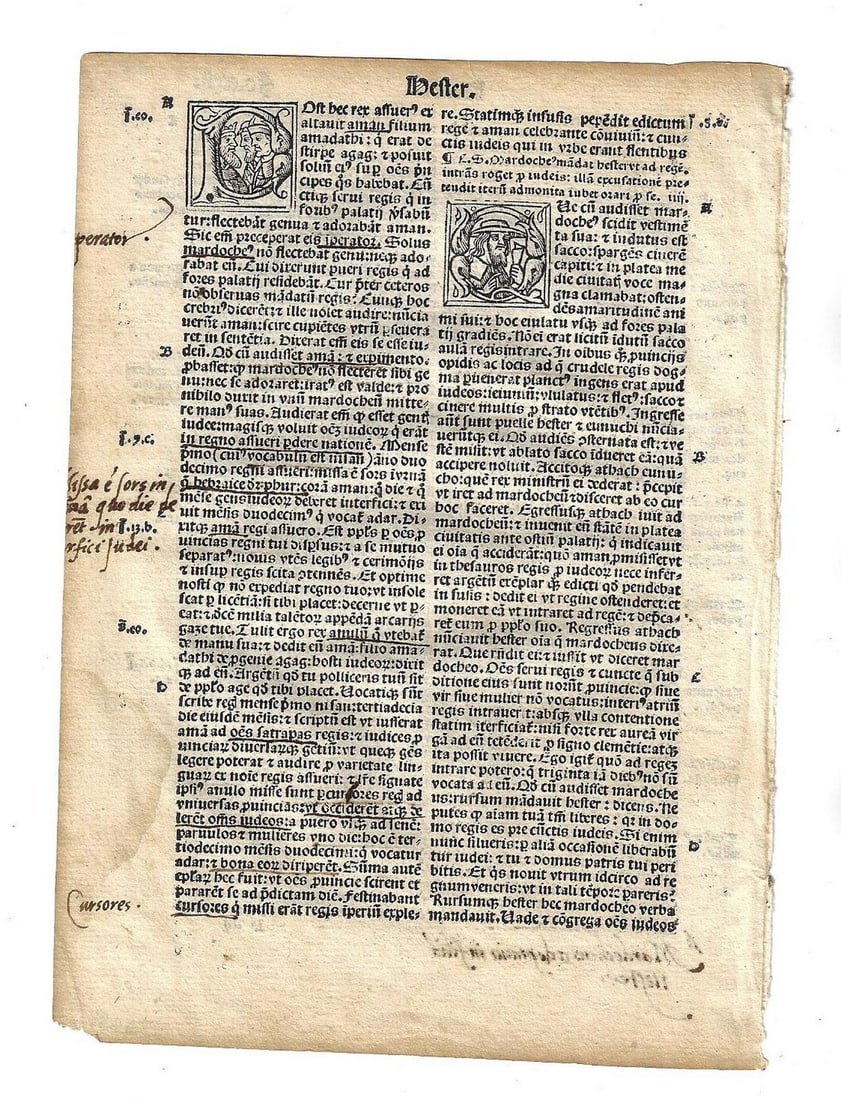 Hester.
A
POst hec rex assuerꝰ ex
altauit aman filium
amadathi: q̃ erat de
stirpe agag: ⁊ posuit
soliũ eiꝰ sup oẽs p̃n
cipes q̃s habebat. Cũ
ctiqꝫ serui regis q̃ in
foribꝰ palatij v̓sabũ
tur: flectebãt genua ⁊ adorabãt aman.
Sic em̃ preceperat eis iperator. Solus
mardocheꝰ nõ flectebat genu: neqꝫ ado-
rabat eũ. Cui dixerunt pueri regis q̃ ad
fores palatij residebãt. Cur p̃ter ceteros
nõ obseruas mãdatũ regis? Cunqꝫ hoc
crebriꝰ dicerẽt: ⁊ ille nolet audire: nũcia
uerũt aman: scire cupiẽtes vtrũ p̱seuera
ret in sentẽtia. Dixerat em̃ eis se esse iu-
B
deũ. Qđ cũ audisset amã: ⁊ expimento
p̱basset: ꝙ mardocheꝰ nõ flecteret sibi ge
nu: nec se adoraret: iratꝰ est valde: ⁊ pro
nihilo duxit in vnũ mardocheũ mitte-
re manꝰ suas. Audierat em̃ ꝙ esset gentꝭ
iudee: magisqꝫ voluit oẽs iudeoꝝ q̃ erãt
in regno assueri p̱dere nationẽ. Mense
p̃mo (cuiꝰ vocabulũ est nisan) ãno duo
decimo regni assueri: missa ẽ sors in vrnã
q̃ hebraice d̃r phur: corã aman: q̃ die ⁊ q̃
mẽse gens iudeoꝝ deberet interfici: ⁊ ex
uit mẽsis duodecimꝰ q̃ vocat̃ adar. Di-
xitqꝫ amã regi assuero. Est pp̱ls p̱ oẽs p̱
uincias regni tui disp̱sus: ⁊ a se mutuo
separatꝰ: nouis vtẽs legibꝰ ⁊ cerimonijs
⁊ insup regis scita ꝯtennẽs. Et optime
nosti ꝙ nõ expediat regno tuo: vt insole
scat p̱ licẽtiã: si tibi placet: decerne vt p̱-
eat: ⁊ decẽ milia talẽtoꝝ appẽdã arcarijs
gaze tue. Tulit ergo rex anulũ q̃ vtebat̃
de manu sua: ⁊ dedit eũ amã: filio ama-
dathi de p̱genie agag: hosti iudeoꝝ: dixit
qꝫ ad eũ. Argẽtũ qđ tu polliceris tuũ sit
D
de pp̱lo age qđ tibi placet. Vocatiqꝫ sũt
scribe regꝭ mense p̃mo nisan: tertiadecia
die eiusdẽ mẽsis: ⁊ scriptũ est vt iusserat
amã ad oẽs satrapas regis: ⁊ iudices p̱
uinciaꝝ diuersarũqꝫ gẽtiũ: vt queqꝫ gẽs
legere poterat ⁊ audire p̱ varietate lin-
guaꝝ ex noĩe regis assueri: ⁊ lr̃e signate
ipsiꝰ anulo misse sunt p̱ cursores regꝭ ad
vniuersas p̱uincias: vt occiderẽt atqꝫ de
lerẽt oĩns iudeos: a puero vsqꝫ ad senẽ:
paruulos ⁊ mulieres vno die: hoc ẽ ter-
tiodecimo mẽsis duodecimi: q̃ vocatur
adar: ⁊ bona eoꝝ diriperẽt. Sũma autẽ
ep̃laꝝ hec fuit: vt oẽs p̱uincie scirent ⁊
pararẽt se ad p̃dictam diẽ. Festinabant
cursores q̃ missi erãt regis iperiũ exple-
re. Statimqꝫ in susis pepẽdit edictum
rege ⁊ aman celebrante cõuiuiũ: ⁊ cun-
ctis iudeis qui in vrbe erant flentibus
¶ C.S. Mardocheꝰ mãdat hester vt ad regẽ
intrãs roget p̱ iudeis: illã excusationẽ pre-
tendit iterũ admonita iubet orari p̱ se. iiij.
A
QUe cũ audisset mar-
docheꝰ scidit vestimẽ
ta sua: ⁊ indutus est
sacco: spargẽs cinerẽ
capiti: ⁊ in platea me
die ciuitatꝭ voce ma-
gna clamabat: osten-
dẽs amaritudinẽ ani
mi sui: ⁊ hoc eiulatu vsqꝫ ad fores pala
tij gradiẽs. Nõ ei erat licitũ idutũ sacco
aulã regis intrare. In oibus qꝫ p̱uincijs
opidis ac locis ad q̃ crudele regis dog-
ma p̱uenerat planctꝰ ingens erat apud
iudeos: ieiuniũ: vlulatus: ⁊ fletꝰ: sacco ⁊
cinere multis p̱ strato vtẽtibꝰ. Ingresse
aũt sunt puelle hester ⁊ eunuchi nũcia-
uerũtqꝫ ei. Qđ audiẽs ꝯsternata est: ⁊ ve
B
stẽ misit: vt ablato sacco idueret eã: quã
accipere noluit. Accitoqꝫ athach eunu-
cho: quẽ rex ministrũ ei dederat: p̃cepit
vt iret ad mardocheũ ⁊ disceret ab eo cur
hoc faceret. Egressusqꝫ athach iuit ad
mardocheũ: ⁊ inuenit eũ stãtẽ in platea
ciuitatis ante ostiũ palatij: q̃ indicauit
ei oĩa q̃ acciderãt: quõ aman p̱misisset vt
in thesauros regis p̱ iudeoꝝ nece infer-
ret argẽtũ: exẽplar qꝫ edicti qđ pendebat
in susis: dedit ei vt regine ostenderet: ⁊
moneret eã vt intraret ad regẽ: ⁊ dep̃ca-
ret̃ eum p̱ pp̱lo suo. Regressus athach
nũciauit hester oĩa q̃ mardocheus dixe-
rat. Que rñdit ei: ⁊ iussit vt diceret mar
docheo. Oẽs serui regis ⁊ cuncte q̃ sub
C
ditione eius sunt norũt p̱uincie: ꝙ siue
vir siue mulier nõ vocatus: interiꝰ atriũ
regis intrauerit: absqꝫ vlla contentione
statim iterficiat̃: nisi forte rex aureã vir
gã ad eũ tetẽderit p̱ signo clemẽtie: atqꝫ
ita possit viuere. Ego igit̃ quõ ad regẽ
intrare potero: ꝙ triginta iã diebꝰ nõ sũ
vocata ad eũ. Qđ cũ audisset mardoche
us: rursum mãdauit hester: dicens. Ne
putes ꝙ aiam tuã tm̃ liberes: qꝛ in do-
mo regis es pre cũctis iudeis. Si enim
D
nunc silueris: p̱ aliã occasionẽ liberabũ
tur iudei: ⁊ tu ⁊ domus patris tui peri
bitis. Et q̃s nouit vtrum idcirco ad re
gnum veneris: vt in tali tẽpore parereris?
Rursumqꝫ hester hec mardocheo verba
mandauit. Uade ⁊ cõgrega oẽs iudeos
j.co.
perator.
j.9.c.
j.13.b.
rfici Judei.
3.co.
Cursores.